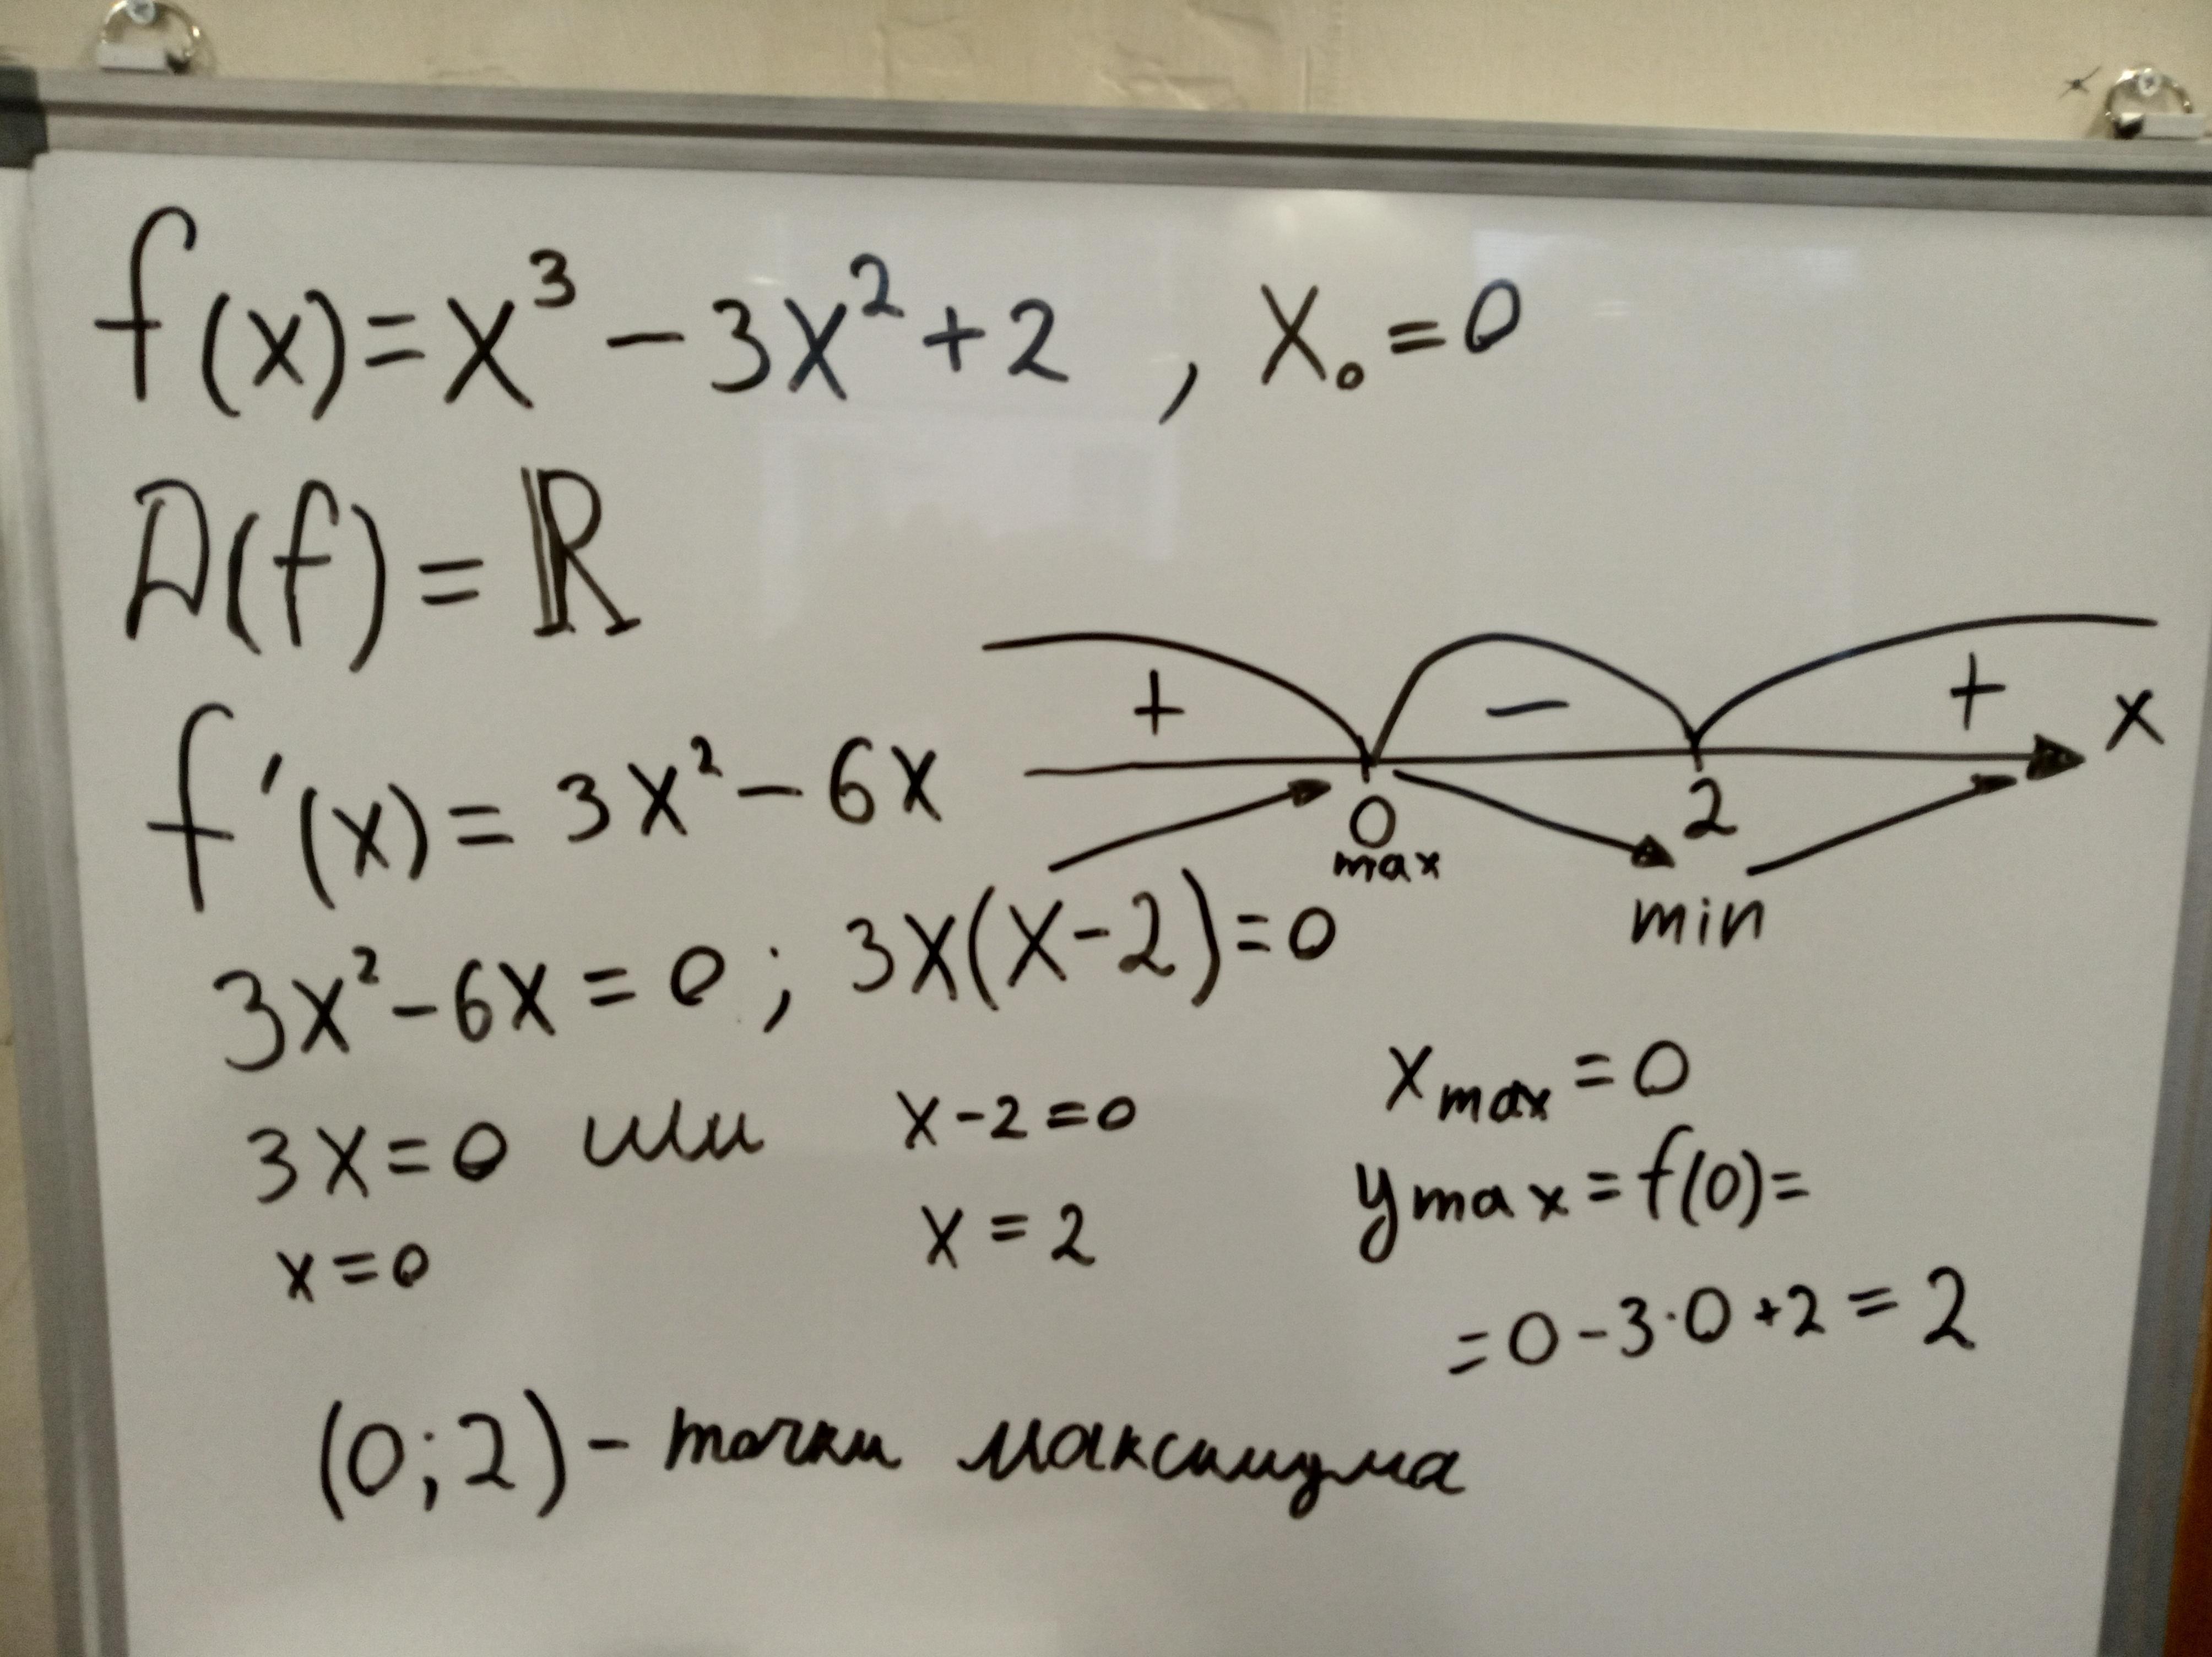 f(x)=x³-3x²+2 , x₀=0
D(f)=ℝ
+ - + x
0 2
max
min
f'(x)=3x²-6x
3x²-6x=0; 3x(x-2)=0
3x=0 или x-2=0
x=0 x=2
x max=0
y max=f(0)=
=0-3·0+2=2
(0;2)- точки максимума